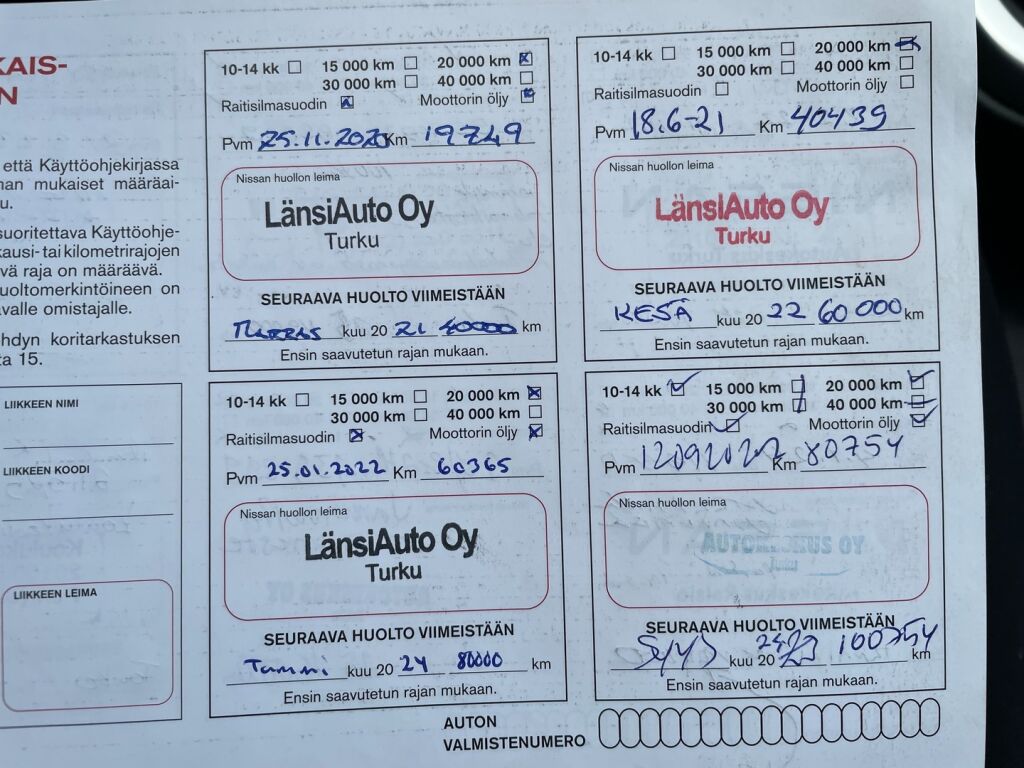 KAIS-
N
että Käyttöohjekirjassa
nan mukaiset määräai-
u.
suoritettava Käyttöohje-
kausi- tai kilometrirajojen
vä raja on määräävä.
uoltomerkintöineen on
avalle omistajalle.
ehdyn koritarkastuksen
ta 15.
LIIKKEEN NIMI
LIIKKEEN KOODI
LIIKKEEN LEIMA
10-14 kk 15 000 km 20 000 km
30 000 km 40 000 km
Raitisilmasuodin Moottorin öljy
Pvm 25.11.2020 Km 19749
Nissan huollon leima
LänsiAuto Oy
Turku
SEURAAVA HUOLTO VIIMEISTÄÄN
kuu 20 21 40000 km
Ensin saavutetun rajan mukaan.
10-14 kk 15 000 km 20 000 km
30 000 km 40 000 km
Raitisilmasuodin Moottorin öljy
Pvm 18.6-21 Km 40439
Nissan huollon leima
LänsiAuto Oy
Turku
SEURAAVA HUOLTO VIIMEISTÄÄN
KESÄ kuu 20 22 60 000 km
Ensin saavutetun rajan mukaan.
10-14 kk 15 000 km 20 000 km
30 000 km 40 000 km
Raitisilmasuodin Moottorin öljy
Pvm 25.01.2022 Km 60365
Nissan huollon leima
LänsiAuto Oy
Turku
SEURAAVA HUOLTO VIIMEISTÄÄN
Tammi kuu 20 24 80000 km
Ensin saavutetun rajan mukaan.
10-14 kk 15 000 km 20 000 km
30 000 km 40 000 km
Raitisilmasuodin Moottorin öljy
Pvm 12092022 Km 80754
Nissan huollon leima
OY
SEURAAVA HUOLTO VIIMEISTÄÄN
Syys kuu 20 100754 km
Ensin saavutetun rajan mukaan.
AUTON
VALMISTENUMERO